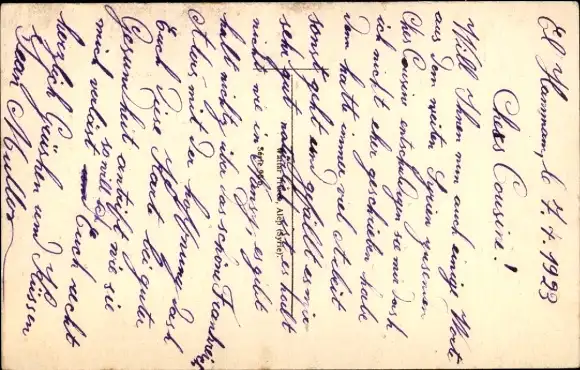 El Hammam, d. 7.4.1923
Chers Cousine!
Will Ihnen nun auch einige Worte
aus dem weiten Syrien zusenden
Chrs Cousine entschuldigen sie mir dass
ich nicht eher geschrieben habe
denn hatte immer viel Arbeit
sonst geht und gefällt es mir
sehr gut natürlich ist es halt
nicht wie in Annecy, es gibt
halt nichts über das schöne Frankreich
Also mit der hoffnung dass
Euch diese Karte bei guter
Gesundheit antrifft wie sie
mich verläst so will Euch recht
herzlich Grüssen und Küssen
Jean Muller